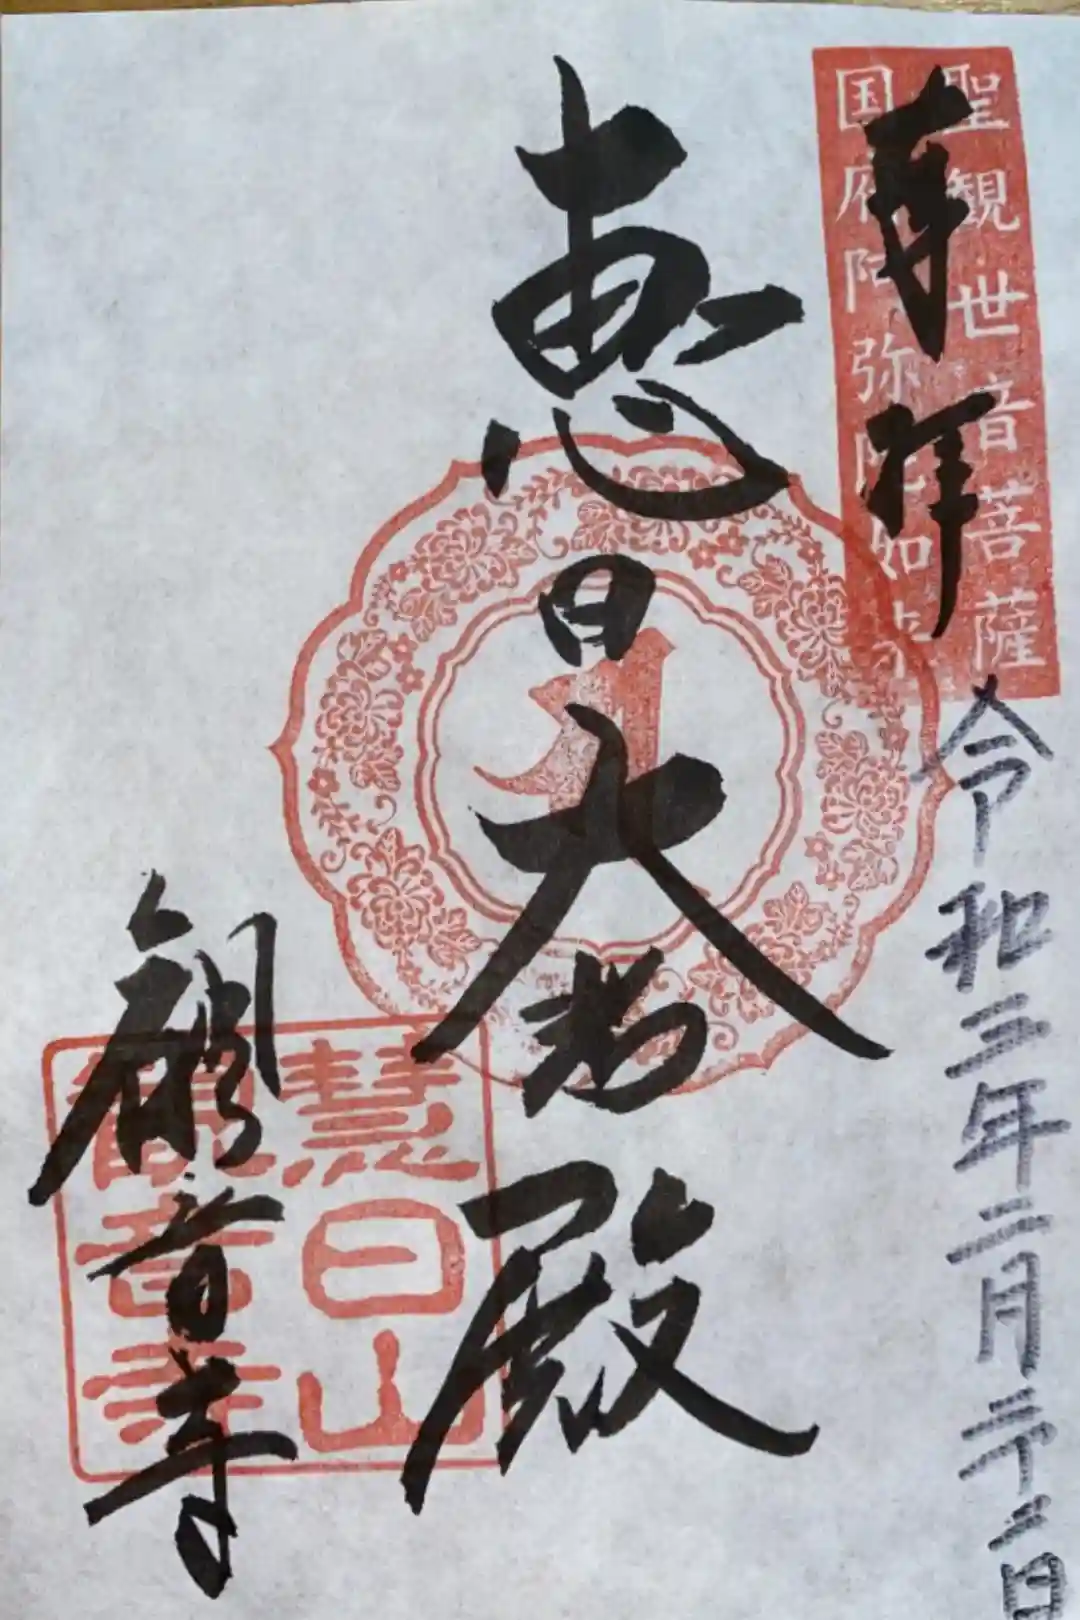 聖観世音菩薩
国府阿弥陀如来
奉拝
令和三年二月二十二日
恵日大悲殿
観音寺
慧日山
観音寺